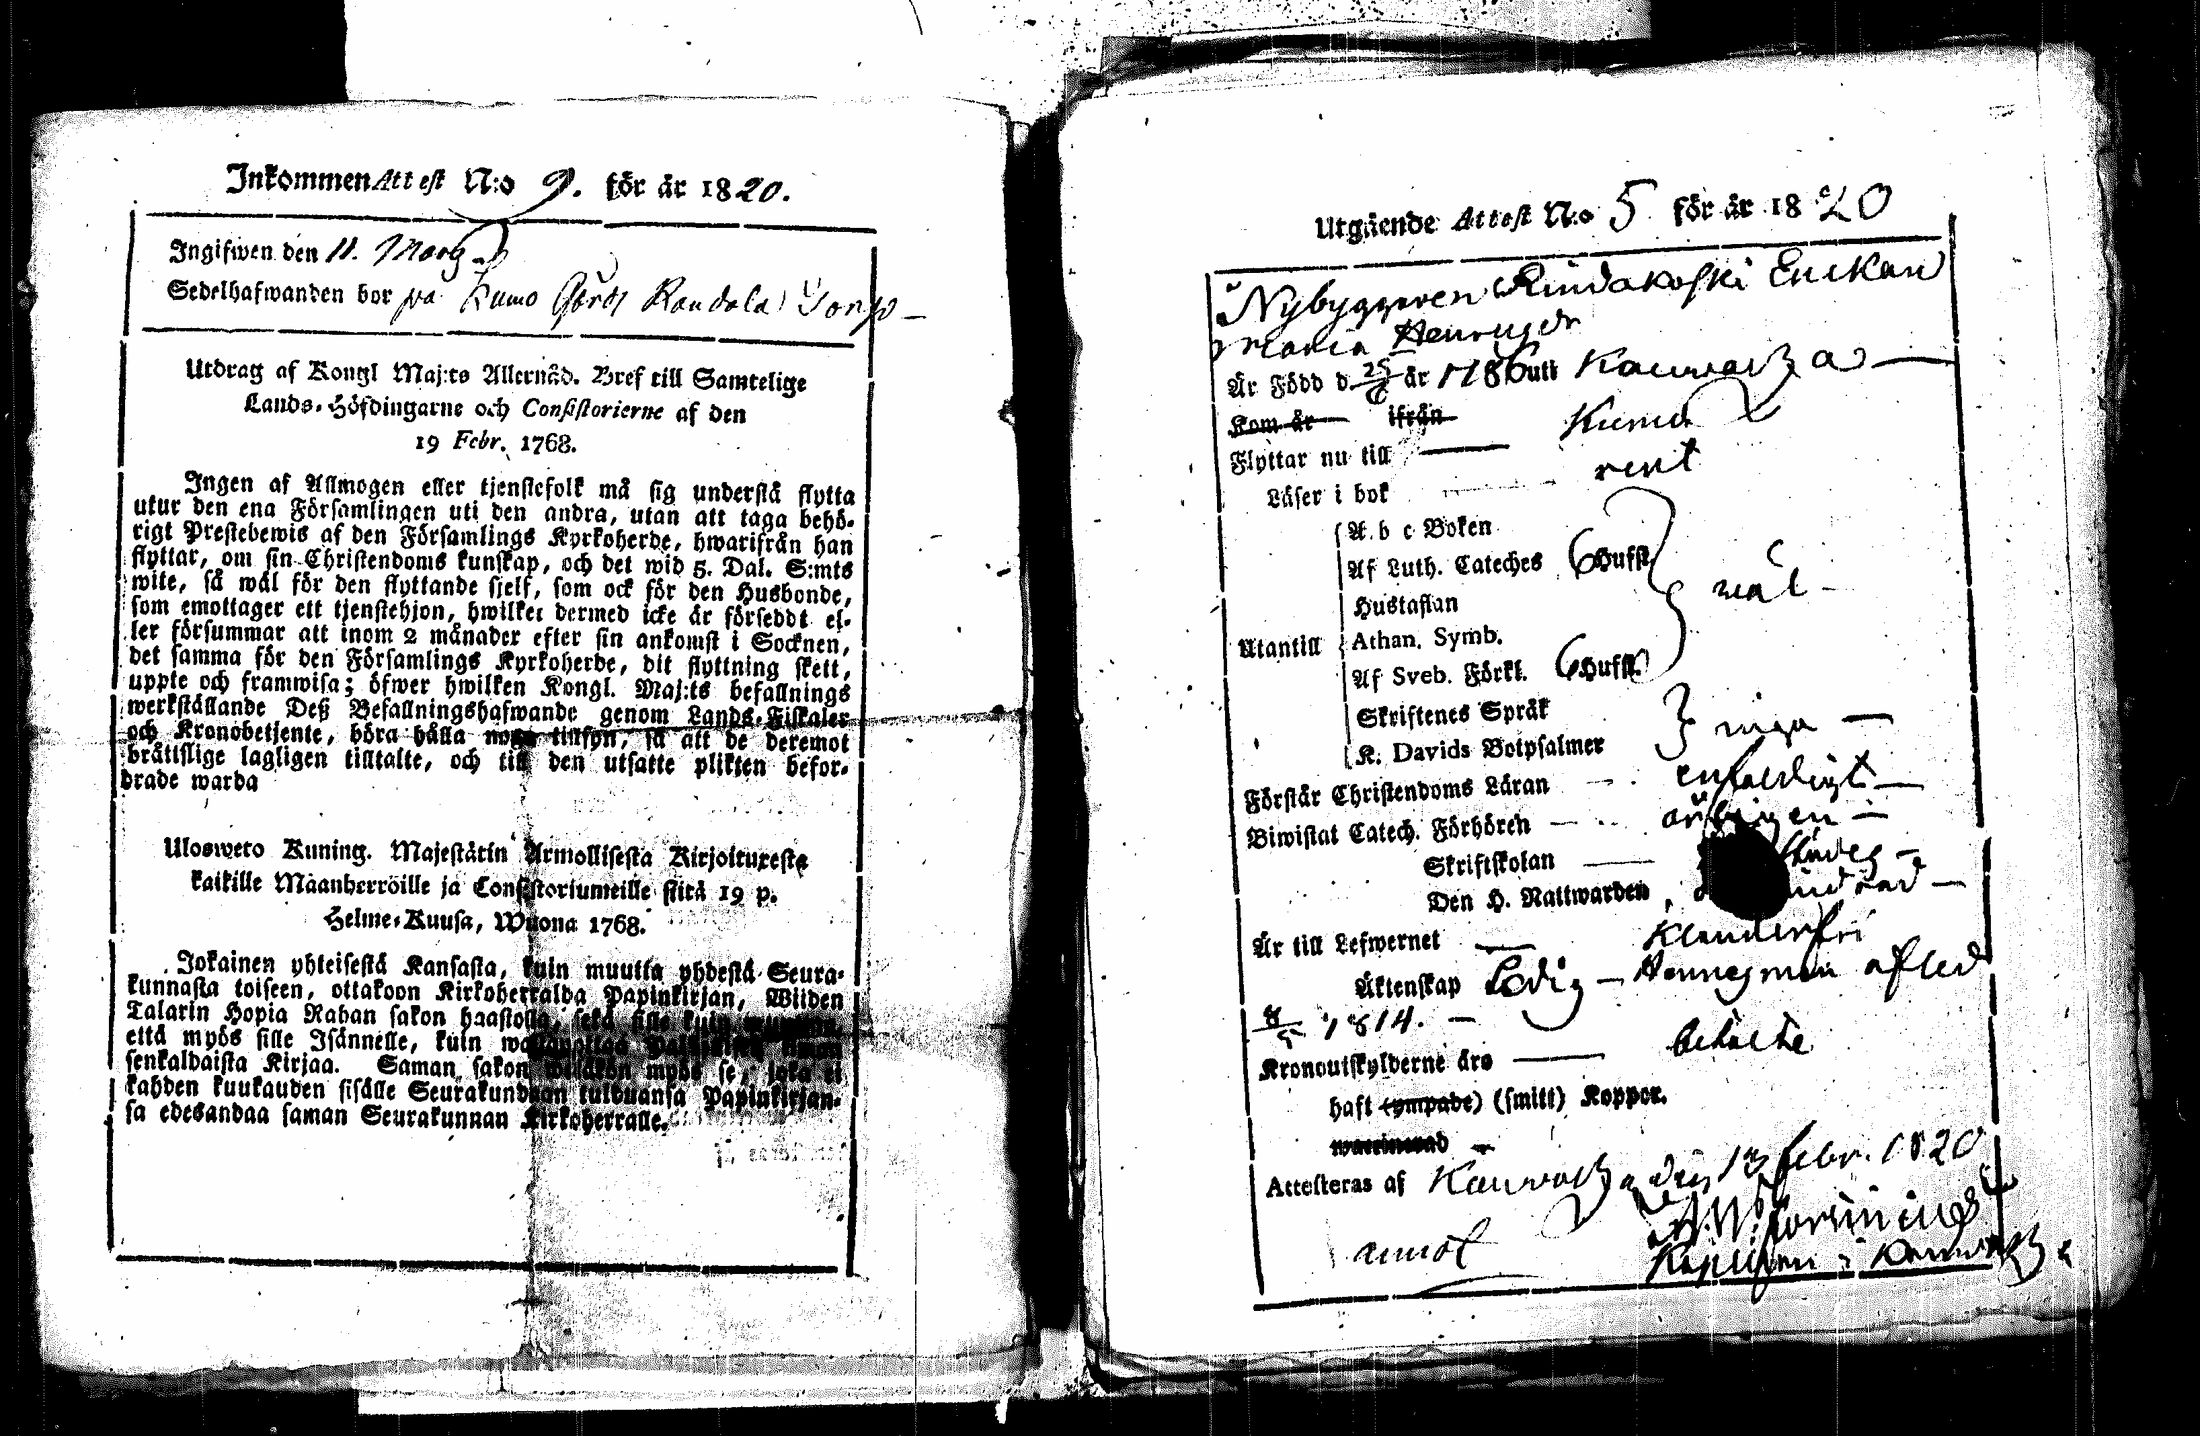 Inkommen Attest N:o 9. för år 1820.
Ingifwen den 11. Martz
Sedelhafwanden bor på Kumo Gårds Randala Torp
Utdrag af Kongl Maj:ts Allernåd. Bref till Samtelige
Lands-Höfdingarne och Consistorierne af den
19 Febr. 1768.
Ingen af Allmogen eller tjenstefolk må sig understå flytta
utur den ena Församlingen uti den andra, utan att taga behö-
rigt Prestebewis af den Församlings Kyrkoherde, hwarifrån han
flyttar, om sin Christendoms kunskap, och det wid 5. Dal. S:mts
wite, så wäl för den flyttande sjelf, som ock för den Husbonde,
som emottager ett tjenstehjon, hwilket dermed icke är försedt el-
ler försummar att inom 2 månader efter sin ankomst i Socknen,
det samma för den Församlings Kyrkoherde, dit flyttning skett,
uppte och framwisa; öfwer hwilken Kongl. Maj:ts befallnings
werkställande Deß Befallningshafwande genom Lands-Fiskaler
och Kronobetjente, böra hålla noga tillsyn, så att de deremot
brättslige lagligen tilltalte, och till den utsatte plikten befor-
drade warda
Ulosweto Kuning. Majestätin Armollisesta Kirjoituxesta
kaikille Maanherroille ja Consistoriumeille siitä 19 p.
Helme-Kuusa, Wuona 1768.
Jokainen yhteisestä Kansasta, kuin muutta yhdestä Seura-
kunnasta toiseen, ottakoon Kirkoherralda Papinkirjan, Wiiden
Talarin Hopia Rahan sakon haastolla, sekä sille kuin
että myös sille Isännelle, kuin
senkaldaista Kirjaa. Saman sakon wetäkön myös se, joka ei
kahden kuukauden sisälle Seurakundaan tulduansa Papinkirjan-
sa edesandaa saman Seurakunnan Kirkoherralle.
Utgående Attest N:o 5 för år 1820
Nybyggaren Rindakoski Enckan
Maria Henricsdr
Är Född d 25/6 år 1786 uti Kauvatza
Kom år ifrån
Flyttar nu till Kumo
Läser i bok rent
A. b c Boken
Af Luth. Cateches 6 Hufst.
Hustaflan
Utantill Athan. Symb. wäl
Af Sveb. Förkl. 6 Hufst.
Skriftenes Språk
K. Davids Botpsalmer inga
Förstår Christendoms Läran enfaldigt
Biwistat Catech. Förhören årligen
Skriftskolan
Den H. Nattwarden
Är till Lefwernet Klanderfri
Äktenskap Ledig – Hennes man afled
8/5 1814.
Kronoutskylderne äro betalte
haft (ympade) (smitt) Koppor.
waccinerad
Attesteras af Kauvatza den 13 febr. 1820
Kapellan i Kauvatza
annot